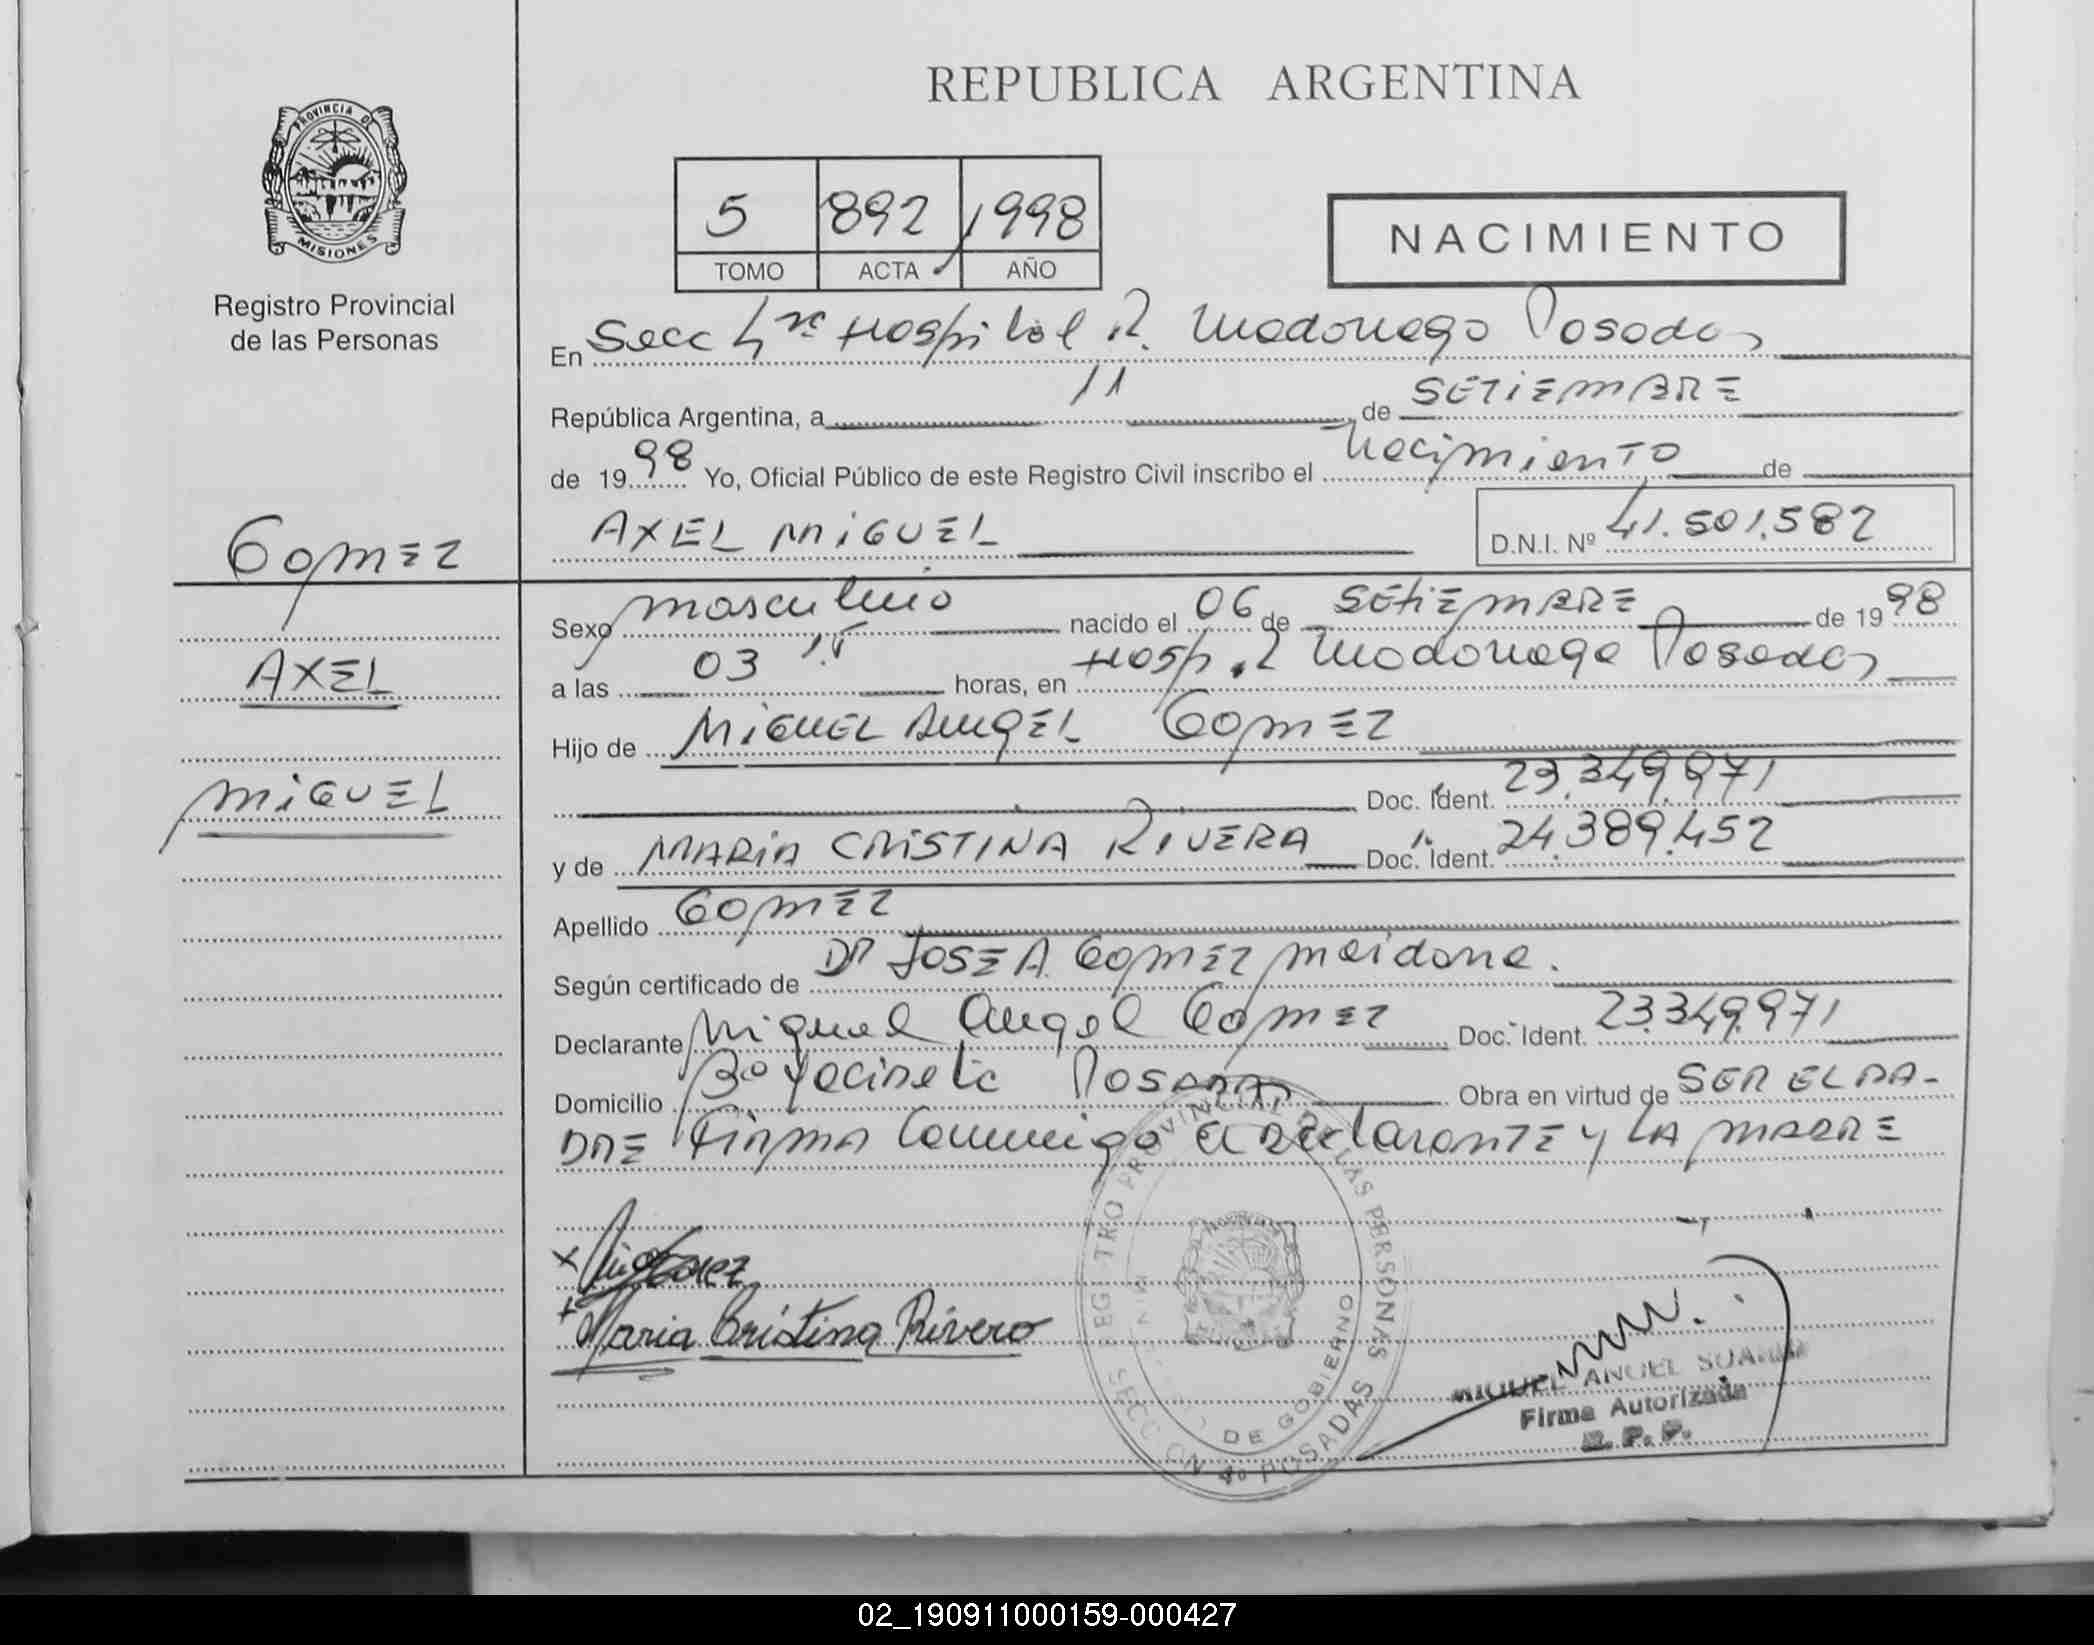 REPUBLICA ARGENTINA
PROVINCIA DE
MISIONES
Registro Provincial
de las Personas
5 892 1998
TOMO ACTA AÑO
NACIMIENTO
En Secc 4ta Hospital R. Madariaga Posadas
República Argentina, a 11 de SETIEMBRE
de 1998 Yo, Oficial Público de este Registro Civil inscribo el Nacimiento de
AXEL MIGUEL D.N.I. Nº 41.501.582
GOMEZ
AXEL
MIGUEL
Sexo masculino nacido el 06 de SETIEMBRE de 1998
a las 03 15 horas, en Hosp. R Madariaga Posadas
Hijo de MIGUEL ANGEL GOMEZ
Doc. Ident. 23.349.971
y de MARIA CRISTINA RIVERA Doc. Ident. 24.389.452
Apellido GOMEZ
Según certificado de DR JOSE A. GOMEZ
Declarante Miguel Angel Gomez Doc. Ident. 23.349.971
Domicilio Bo Yacireta Posadas Obra en virtud de SER EL PA-
DRE Firma Conmigo el declarante y LA MADRE
Maria Cristina Rivero
REGISTRO PROVINCIAL DE LAS PERSONAS
DE GOBIERNO
SECCION 4a POSADAS
MIGUEL ANGEL
Firma Autorizada
R. P. P.
02_190911000159-000427